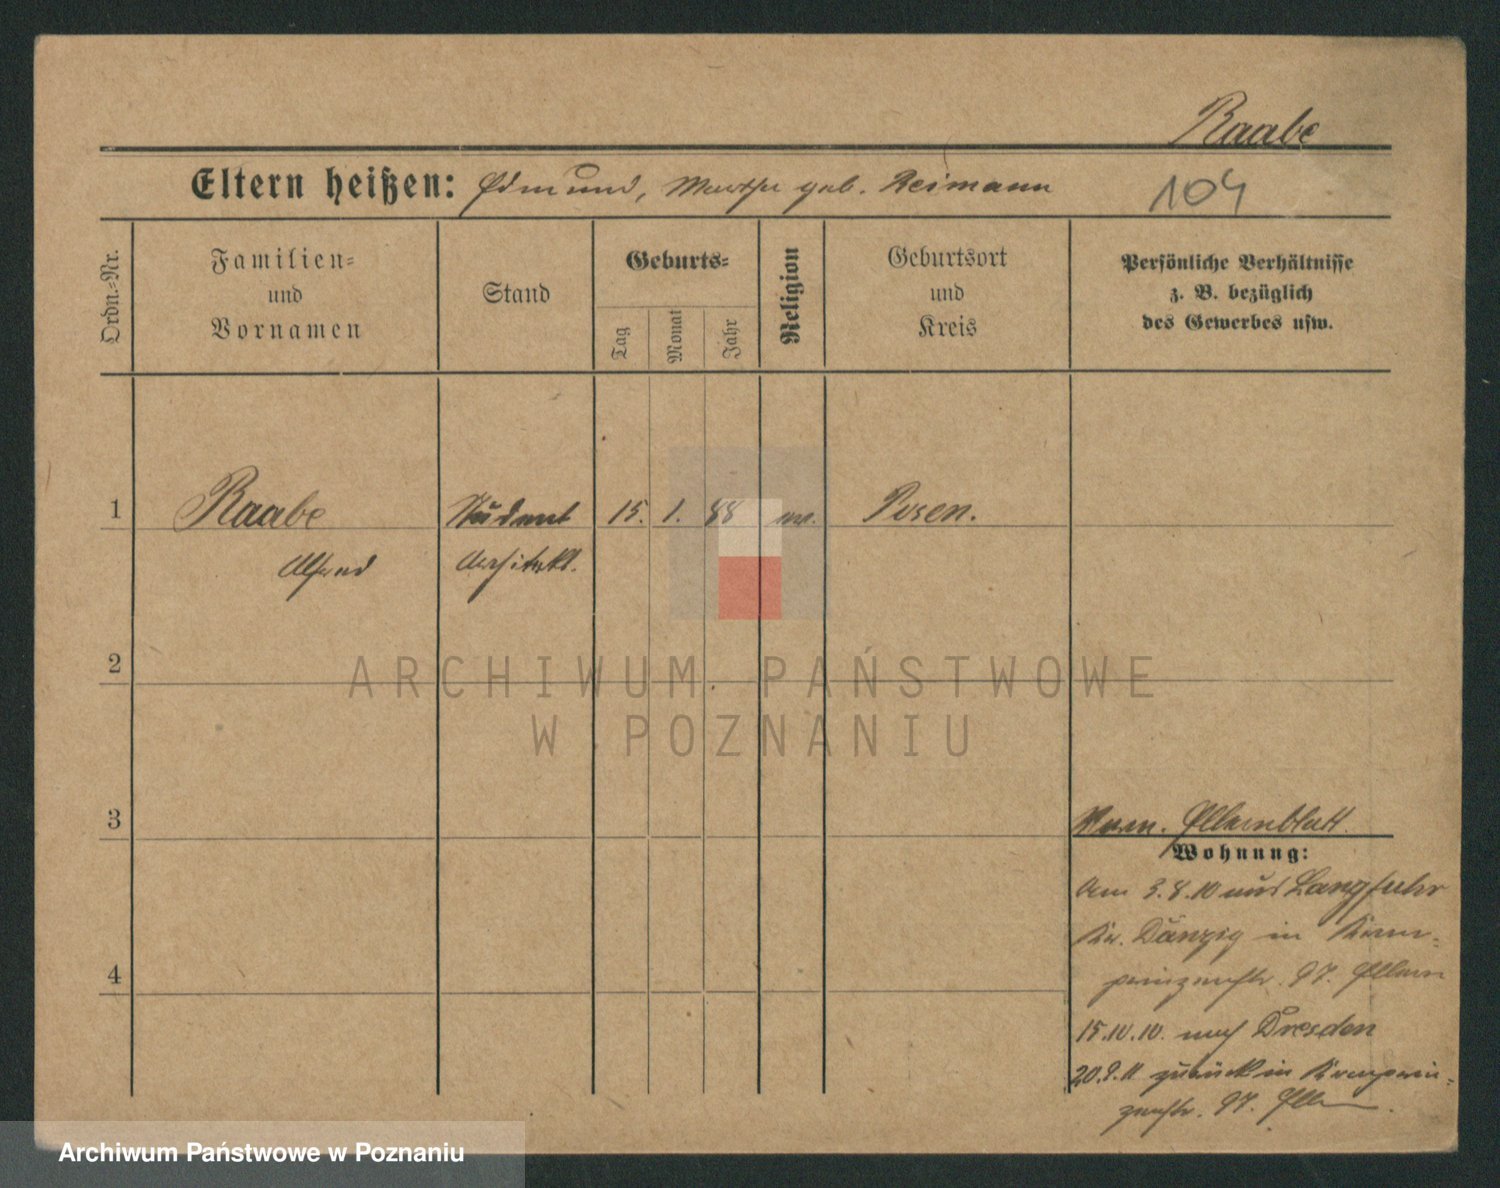 Raabe
Eltern heißen: Edmund, Martha geb. Reimann
104
Ordn.-Nr.
Familien-
und
Vornamen
Stand
Geburts-
Tag
Monat
Jahr
Religion
Geburtsort
und
Kreis
Persönliche Verhältnisse
z. B. bezüglich
des Gewerbes usw.
1 Raabe Student 15. 1. 88 ev. Posen.
Alfred Architekt.
2
3
4
Elternblatt.
Wohnung:
Am 3.8.10 aus Langfuhr
Kr. Danzig in Kron-
prinzenstr. 97. Eltern
15.10.10. nach Dresden
20.9.11 zurück in Kronprin-
zenstr. 97. Eltern.
ARCHIWUM PAŃSTWOWE
W POZNANIU
Archiwum Państwowe w Poznaniu